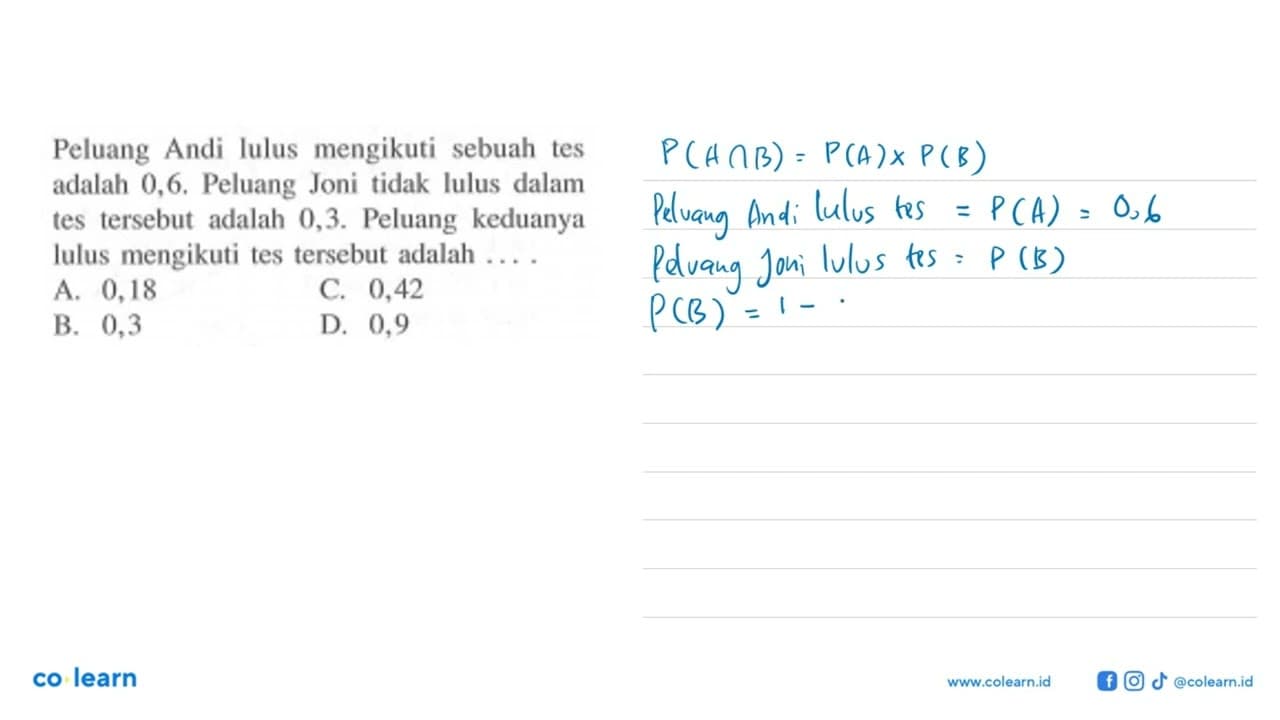 Peluang Andi lulus mengikuti sebuah tes
adalah 0,6. Peluang Joni tidak lulus dalam
tes tersebut adalah 0,3. Peluang keduanya
lulus mengikuti tes tersebut adalah ....
A. 0,18 C. 0,42
B. 0,3 D. 0,9
P(A∩B) = P(A) x P(B)
Peluang Andi lulus tes = P(A) = 0,6
Peluang Joni lulus tes = P(B)
P(B) = 1 -
co learn
www.colearn.id @colearn.id